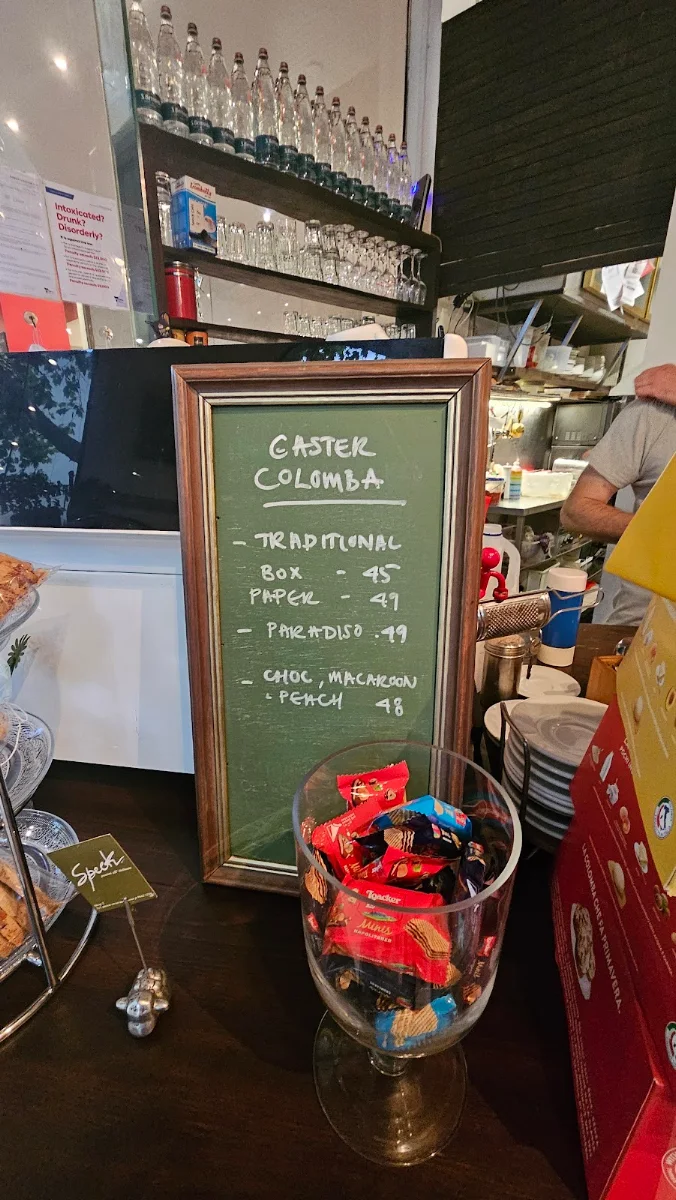 Intoxicated?
Drunk?
Disorderly?
EASTER
COLOMBA
- TRADITIONAL
BOX - 45
PAPER - 49
- PARADISO . 49
- CHOC, MACAROON
- PEACH 48
Speck
Loacker
Minis
NAPOLITANER
LA COLOMBA CHE FA PRIMAVERA.